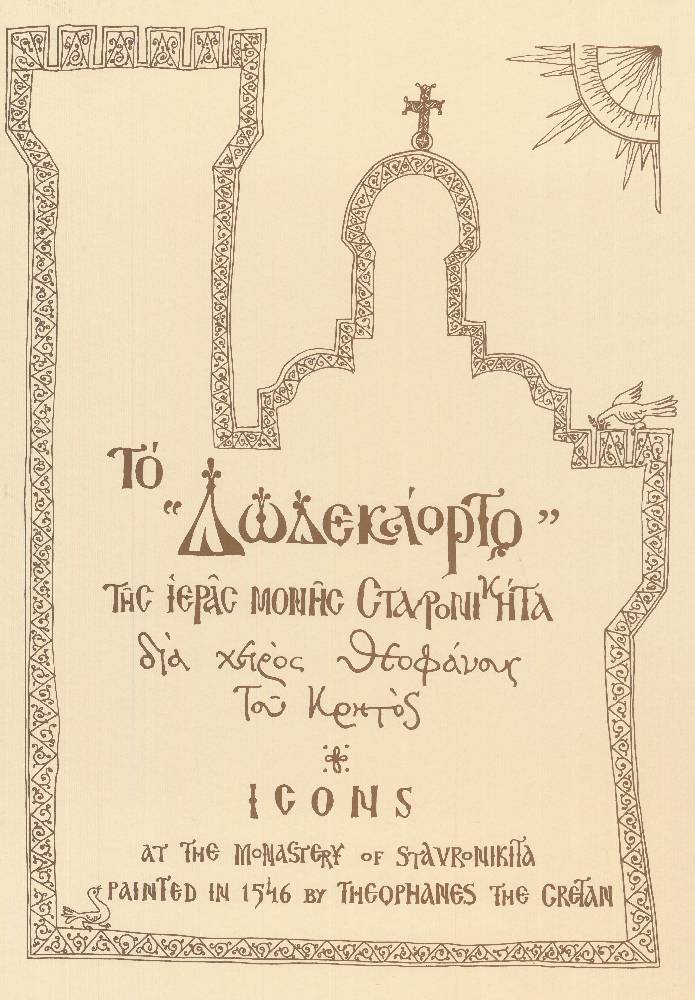 Τό
“Δωδεκάορτο”
τῆς ἱερᾶς μονῆς Σταυρονικήτα
διὰ χειρὸς Θεοφάνους
Τοῦ Κρητὸς
ICONS
AT THE MONASTERY OF STAVRONIKITA
PAINTED IN 1546 BY THEOPHANES THE CRETAN